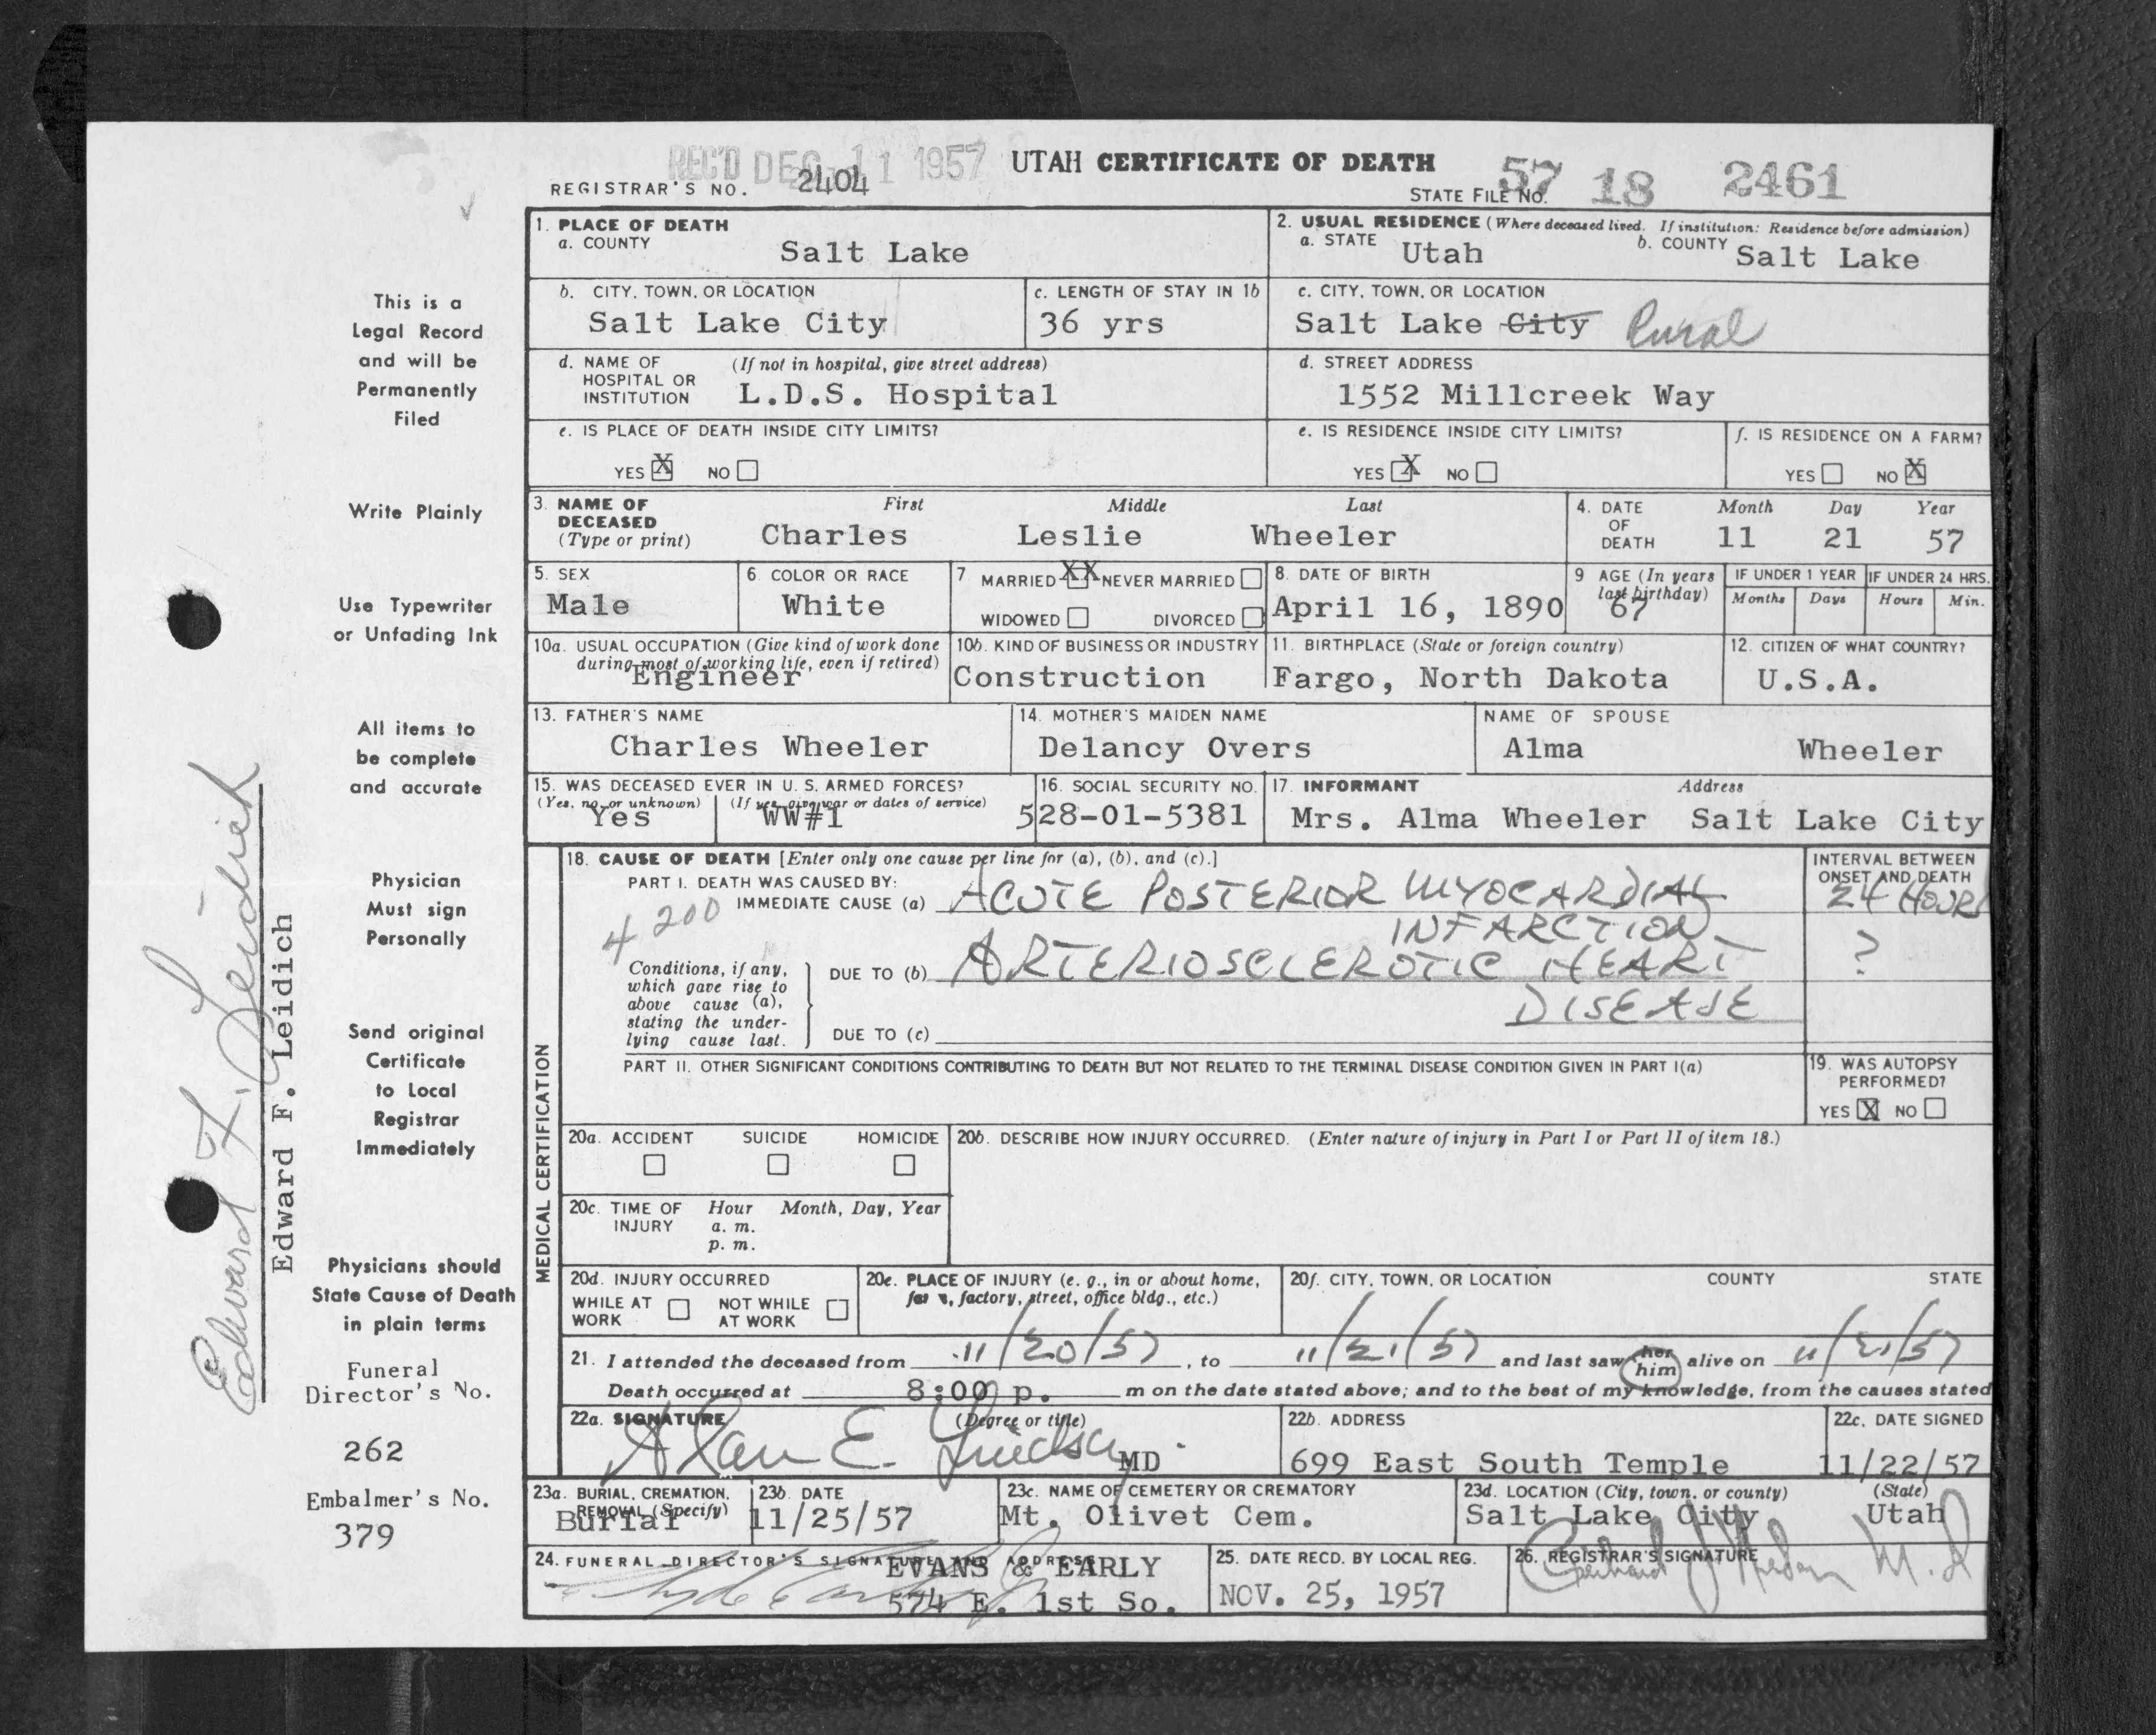 REC'D DEC 11 1957
UTAH CERTIFICATE OF DEATH
REGISTRAR'S NO. 2404
STATE FILE NO. 57 18 2461
1. PLACE OF DEATH
a. COUNTY
Salt Lake
2. USUAL RESIDENCE (Where deceased lived. If institution: Residence before admission)
a. STATE Utah b. COUNTY Salt Lake
b. CITY, TOWN, OR LOCATION
Salt Lake City
c. LENGTH OF STAY IN 1b
36 yrs
c. CITY, TOWN, OR LOCATION
Salt Lake City Rural
d. NAME OF HOSPITAL OR INSTITUTION (If not in hospital, give street address)
L.D.S. Hospital
d. STREET ADDRESS
1552 Millcreek Way
e. IS PLACE OF DEATH INSIDE CITY LIMITS?
YES X NO
e. IS RESIDENCE INSIDE CITY LIMITS?
YES X NO
f. IS RESIDENCE ON A FARM?
YES NO X
3. NAME OF DECEASED (Type or print)
First Middle Last
Charles Leslie Wheeler
4. DATE OF DEATH
Month Day Year
11 21 57
5. SEX
Male
6. COLOR OR RACE
White
7 MARRIED XX NEVER MARRIED
WIDOWED DIVORCED
8. DATE OF BIRTH
April 16, 1890
9 AGE (In years last birthday)
67
IF UNDER 1 YEAR
Months Days
IF UNDER 24 HRS.
Hours Min.
10a. USUAL OCCUPATION (Give kind of work done during most of working life, even if retired)
Engineer
10b. KIND OF BUSINESS OR INDUSTRY
Construction
11. BIRTHPLACE (State or foreign country)
Fargo, North Dakota
12. CITIZEN OF WHAT COUNTRY?
U.S.A.
13. FATHER'S NAME
Charles Wheeler
14. MOTHER'S MAIDEN NAME
Delancy Overs
NAME OF SPOUSE
Alma Wheeler
15. WAS DECEASED EVER IN U. S. ARMED FORCES?
(Yes, no, or unknown) (If yes, give war or dates of service)
Yes WW#1
16. SOCIAL SECURITY NO.
528-01-5381
17. INFORMANT Address
Mrs. Alma Wheeler Salt Lake City
MEDICAL CERTIFICATION
18. CAUSE OF DEATH [Enter only one cause per line for (a), (b), and (c).]
PART I. DEATH WAS CAUSED BY:
IMMEDIATE CAUSE (a) ACUTE POSTERIOR MYOCARDIAL
INFARCTION
4200
INTERVAL BETWEEN ONSET AND DEATH
24 HOURS
Conditions, if any, which gave rise to above cause (a), stating the underlying cause last.
DUE TO (b) ARTERIOSCLEROTIC HEART
DISEASE
?
DUE TO (c)
PART II. OTHER SIGNIFICANT CONDITIONS CONTRIBUTING TO DEATH BUT NOT RELATED TO THE TERMINAL DISEASE CONDITION GIVEN IN PART I(a)
19. WAS AUTOPSY PERFORMED?
YES X NO
20a. ACCIDENT SUICIDE HOMICIDE
20b. DESCRIBE HOW INJURY OCCURRED. (Enter nature of injury in Part I or Part II of item 18.)
20c. TIME OF INJURY
Hour Month, Day, Year
a. m.
p. m.
20d. INJURY OCCURRED
WHILE AT WORK NOT WHILE AT WORK
20e. PLACE OF INJURY (e. g., in or about home, farm, factory, street, office bldg., etc.)
20f. CITY, TOWN, OR LOCATION COUNTY STATE
21. I attended the deceased from 11/20/57, to 11/21/57 and last saw her him alive on 11/21/57
Death occurred at 8:00 p. m on the date stated above; and to the best of my knowledge, from the causes stated
22a. SIGNATURE (Degree or title)
Alan E. Lindsay MD
22b. ADDRESS
699 East South Temple
22c. DATE SIGNED
11/22/57
23a. BURIAL, CREMATION, REMOVAL (Specify)
Burial
23b. DATE
11/25/57
23c. NAME OF CEMETERY OR CREMATORY
Mt. Olivet Cem.
23d. LOCATION (City, town, or county) (State)
Salt Lake City Utah
24. FUNERAL DIRECTOR'S SIGNATURE AND ADDRESS
EVANS & EARLY
574 E. 1st So.
25. DATE RECD. BY LOCAL REG.
NOV. 25, 1957
26. REGISTRAR'S SIGNATURE
M.D
This is a
Legal Record
and will be
Permanently
Filed
Write Plainly
Use Typewriter
or Unfading Ink
All items to
be complete
and accurate
Physician
Must sign
Personally
Send original
Certificate
to Local
Registrar
Immediately
Physicians should
State Cause of Death
in plain terms
Funeral
Director's No.
262
Embalmer's No.
379
Edward F. Leidich
Edward F. Leidich